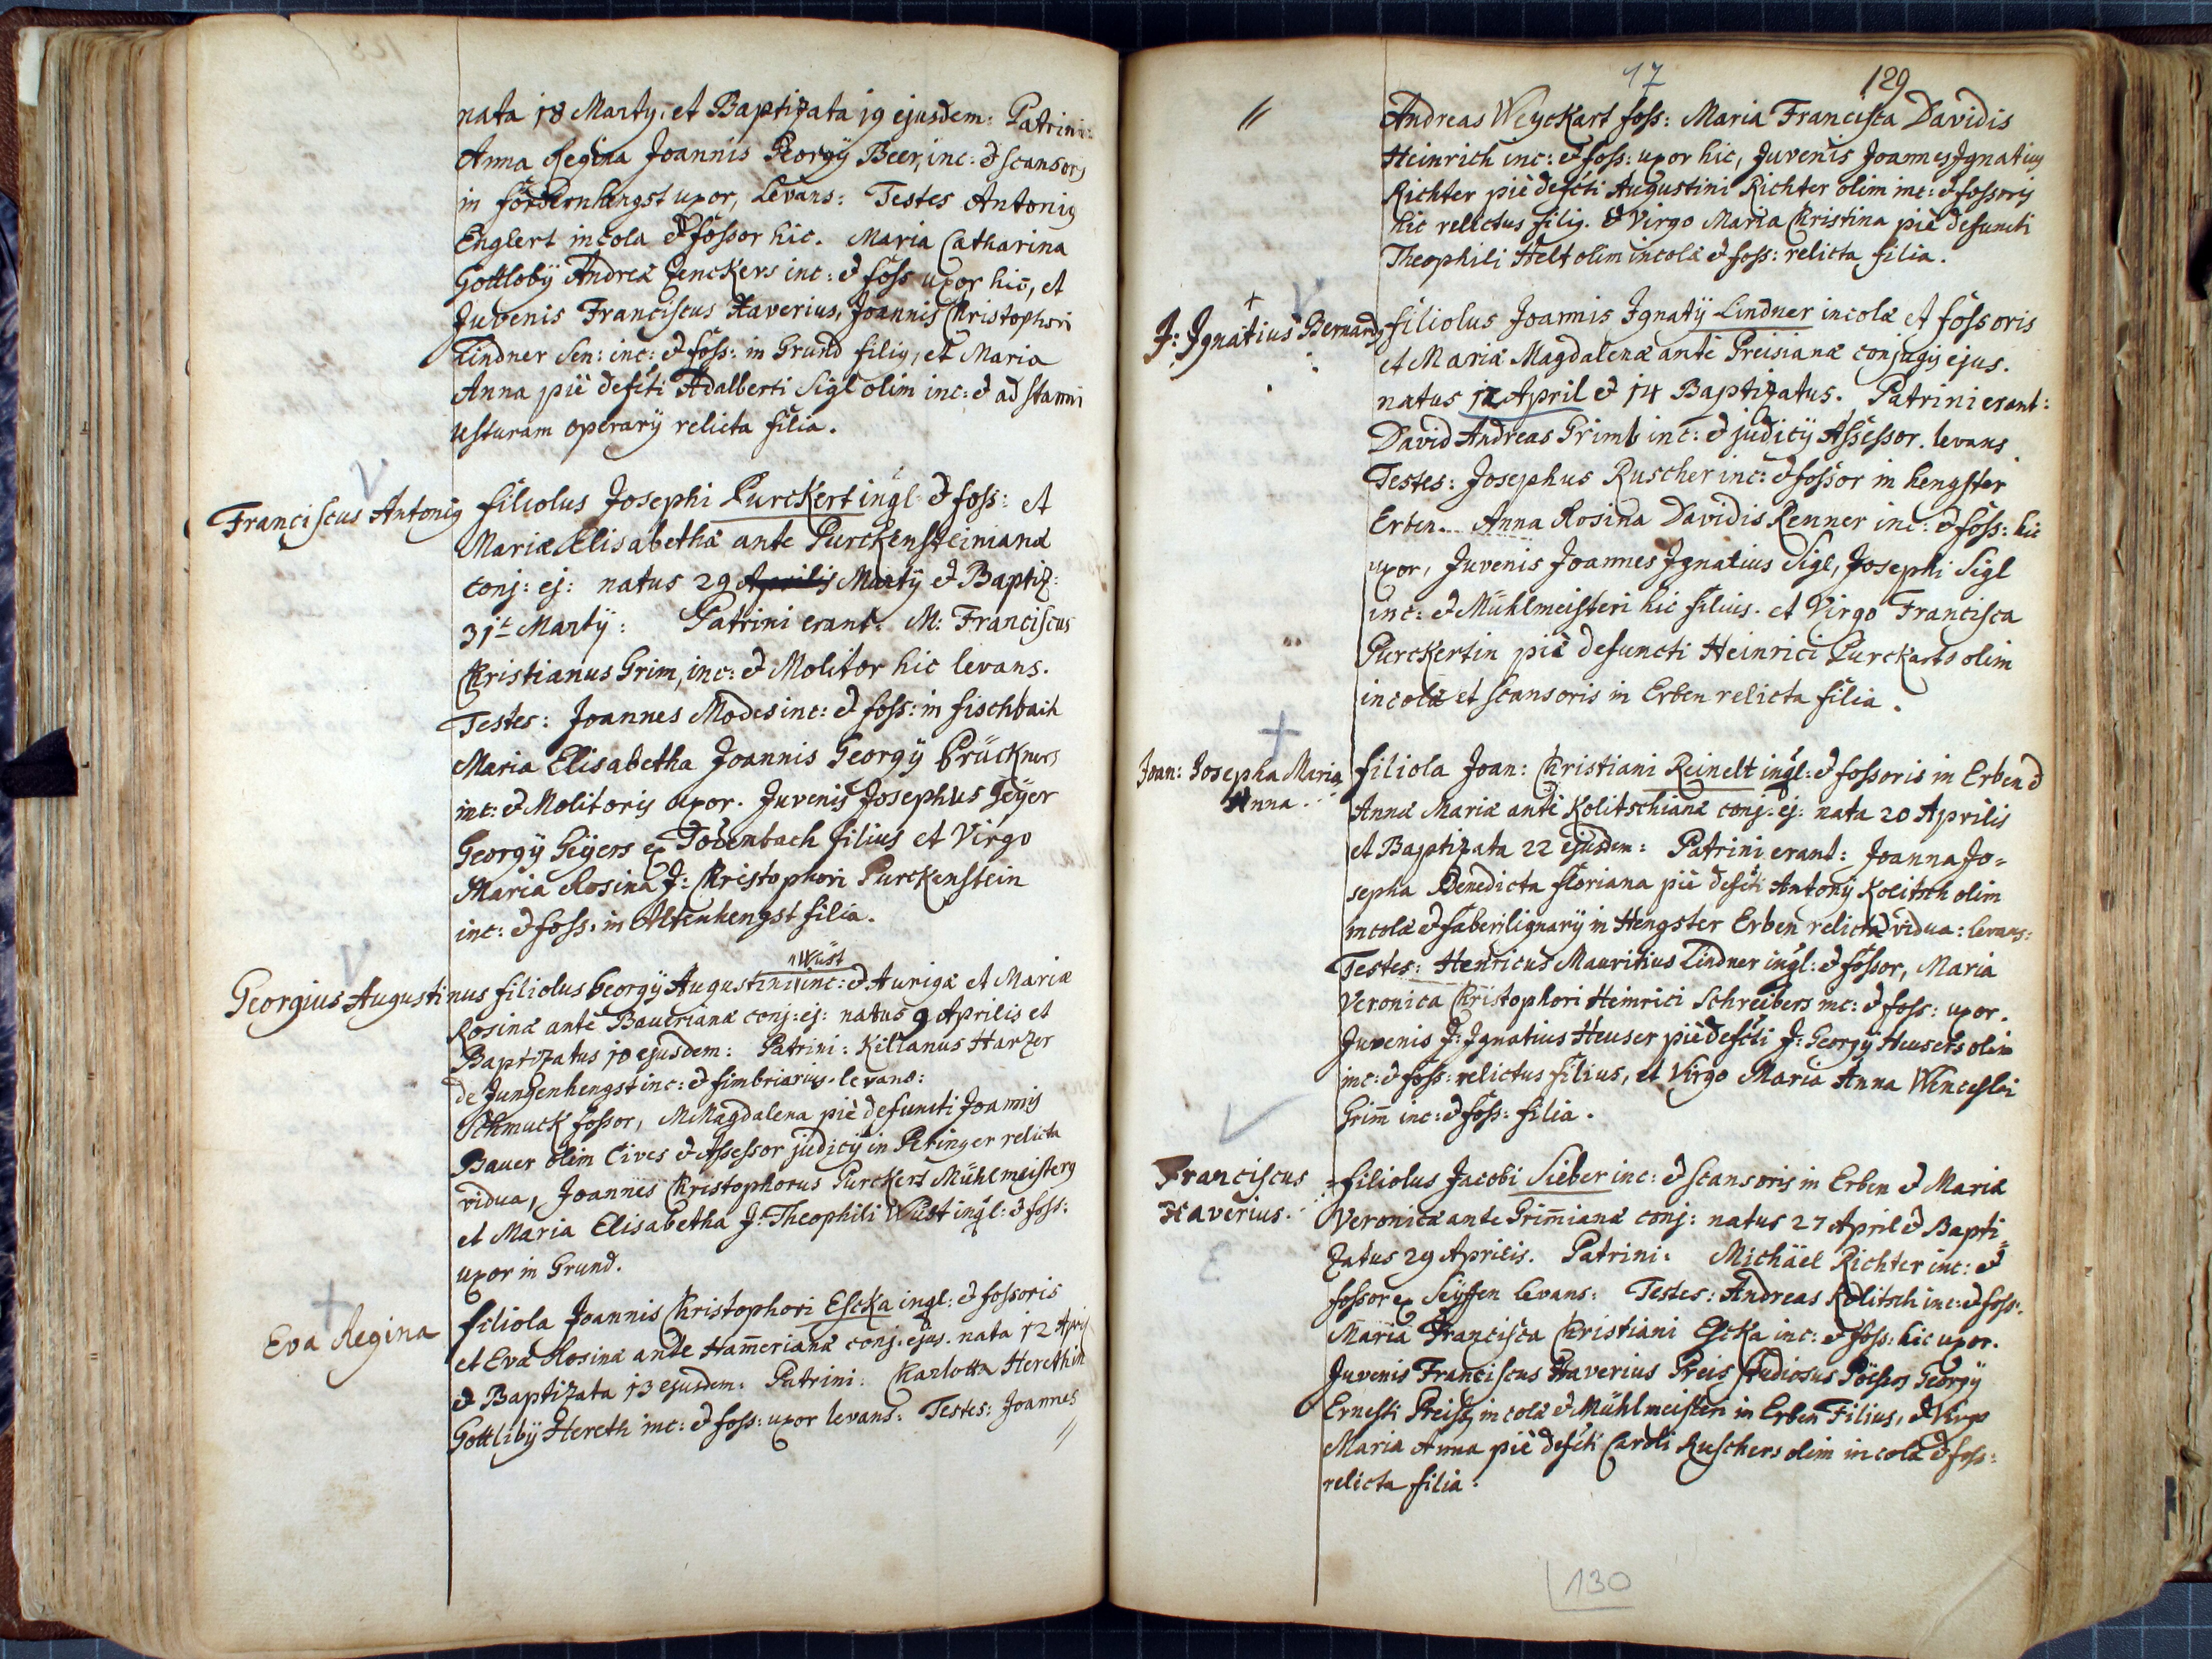 nata 18 Martÿ, et Baptizata 19 ejusdem: Patrini:
Anna Regina Joannis Georgÿ Beer, inc: & scansoris
in fördernhengst uxor, Levans: Testes Antonig
Englert incola & fossor hic. Maria Catharina
Gottlobÿ Andreæ Zenckers inc: & foss uxor hic, et
Juvenis Franciscus Xaverius, Joannis Christophori
Lindner Sen: inc: & foss: in Grund filig, et Maria
Anna piè defcti Adalberti Sigl olim inc: & ad stanni
usturam operarÿ relicta filia.
Franciscus Antonig filiolus Josephi Purckert ingl: & foss: et
Mariæ Elisabethæ ante Purckensteinianæ
conj: ej: natus 29 Aprilis Martÿ & Baptiz:
31t Martÿ: Patrini erant: M: Franciscus
Christianus Grim, inc: & Molitor hic levans.
Testes: Joannes Modes inc: & foss: in fischbach
Maria Elisabetha Joannis Georgÿ Prückners
inc: & Molitoris uxor. Juvenis Josephus Geÿer
Georgÿ Geÿers ex Todenbach filius et Virgo
Maria Rosina J: Christophori Purckenstein
inc: & foss: in Altenhengst filia.
Wüst
Georgius Augustinus filiolus Georgÿ Augustini inc: & Aurigæ et Mariæ
Rosinæ ante Bauerianæ conj: ej: natus 9 Aprilis et
Baptizatus 10 ejusdem: Patrini: Kilianus Harzer
de Jungenhengst inc: & fimbriarius levans:
Schmuck fossor, M Magdalena piè defuncti Joannis
Bauer olim Cives & Assessor judicÿ in Peringer relicta
vidua, Joannes Christophorus Purckert Mühlmeisterg
et Maria Elisabetha J: Theophili Wüst ingl: & foss:
uxor in Grund.
Eva Regina filiola Joannis Christophori Escka ingl: & fossoris
et Evæ Rosinæ ante Ham̄erianæ conj: ejus. nata 12 Apri
& Baptizata 13 ejusdem: Patrini: Charlotta Herethin
Gottlibÿ Hereth inc: & foss: uxor levans: Testes: Joannes
//
17
129
// Andreas Weyckart foss: Maria Francisca Davidis
Heinrich inc: & foss: uxor hic, Juvenis Joannes Ignatius
Richter piè defcti Augustini Richter olim inc: & fossoris
hic relictus filig. & Virgo Maria Christina piè defuncti
Theophili Helt olim incolæ & foss: relicta filia.
J: Ignatius Bernardg filiolus Joannis Ignatÿ Lindner incolæ et fossoris
et Mariæ Magdalenæ ante Preisianæ conjugis ejus.
natus 12 April & 14 Baptizatus. Patrini erant:
David Andreas Grimb inc: & judicÿ Assessor. levans
Testes: Josephus Ruscher inc: & fossor in hengster
Erben. Anna Rosina Davidis Renner inc: & foss: hic
uxor, Juvenis Joannes Ignatius Sigl, Josephi Sigl
inc: & Mühlmeisteri hic filius. et Virgo Francisca
Purckertin piè defuncti Heinrici Purckarts olim
incolæ et scansoris in Erben relicta filia.
Joan: Josepha Maria filiola Joan: Christiani Reinelt ingl: & fossoris in Erben &
Anna. Annæ Mariæ ante Kolitschianæ conj: ej: nata 20 Aprilis
et Baptizata 22 ejusdem: Patrini erant: Joanna Jo=
sepha Benedicta floriana piè defcti Antonÿ Kolitsch olim
incolæ & fabri lignarÿ in Hengster Erben relicta vidua: levans:
Testes: Henricus Mauritius Lindner ingl: & fossor, Maria
Veronica Christophori Heinrici Schreibers inc: & foss: uxor.
Juvenis J: Ignatius Heuser piè defcti J: Georgÿ Heusers olim
inc: & foss: relictus filius, et Virgo Maria Anna Wenceslai
Grim̄ inc: & foss: filia.
Franciscus filiolus Jacobi Sieber inc: & scansoris in Erben & Mariæ
Xaverius. Veronicæ ante Grim̄ianæ conj: natus 27 April & Bapti=
zatus 29 Aprilis. Patrini: Michäel Richter inc: &
fossor ex Seÿffen levans: Testes: Andreas Kolitsch inc: & foss:
Maria Francisca Christiani Escka inc: & foss: hic uxor.
Juvenis Franciscus Xaverius Preis studiosus Poësos Georgÿ
Ernesti Preiss incolæ & Mühlmeisteri in Erben Filius, & Virgo
Maria Anna piè defcti Caroli Ruschers olim incolæ & foss:
relicta filia.
130